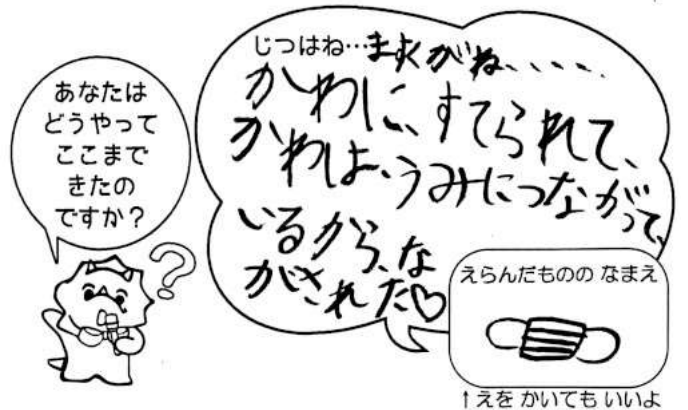 あなたは
どうやって
ここまで
きたの
ですか？
?
じつはね…ますくがね、、、、、
かわに、すてられて、
かわは、うみにつながって、
いるから、な
がされた♡
えらんだものの なまえ
↑えを かいても いいよ